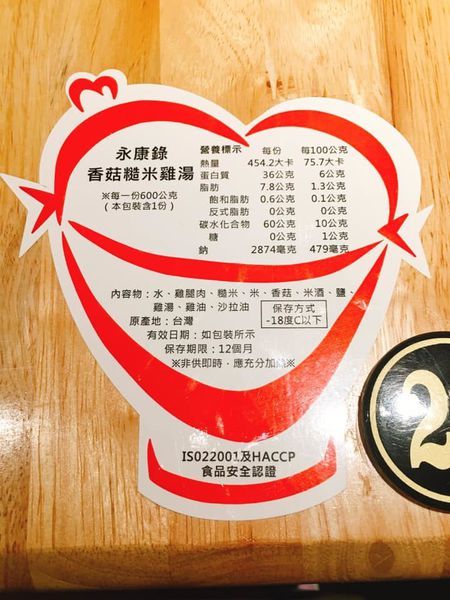 永康錄
香菇糙米雞湯
※每一份600公克
(本包裝含1份)
營養標示 每份 每100公克
熱量 454.2大卡 75.7大卡
蛋白質 36公克 6公克
脂肪 7.8公克 1.3公克
飽和脂肪 0.6公克 0.1公克
反式脂肪 0公克 0公克
碳水化合物 60公克 10公克
糖 0公克 1公克
鈉 2874毫克 479毫克
內容物：水、雞腿肉、糙米、米、香菇、米酒、鹽、
雞湯、雞油、沙拉油
原產地：台灣
保存方式
-18度C以下
有效日期：如包裝所示
保存期限：12個月
※非供即時，應充分加熱※
IS022001及HACCP
食品安全認證
2